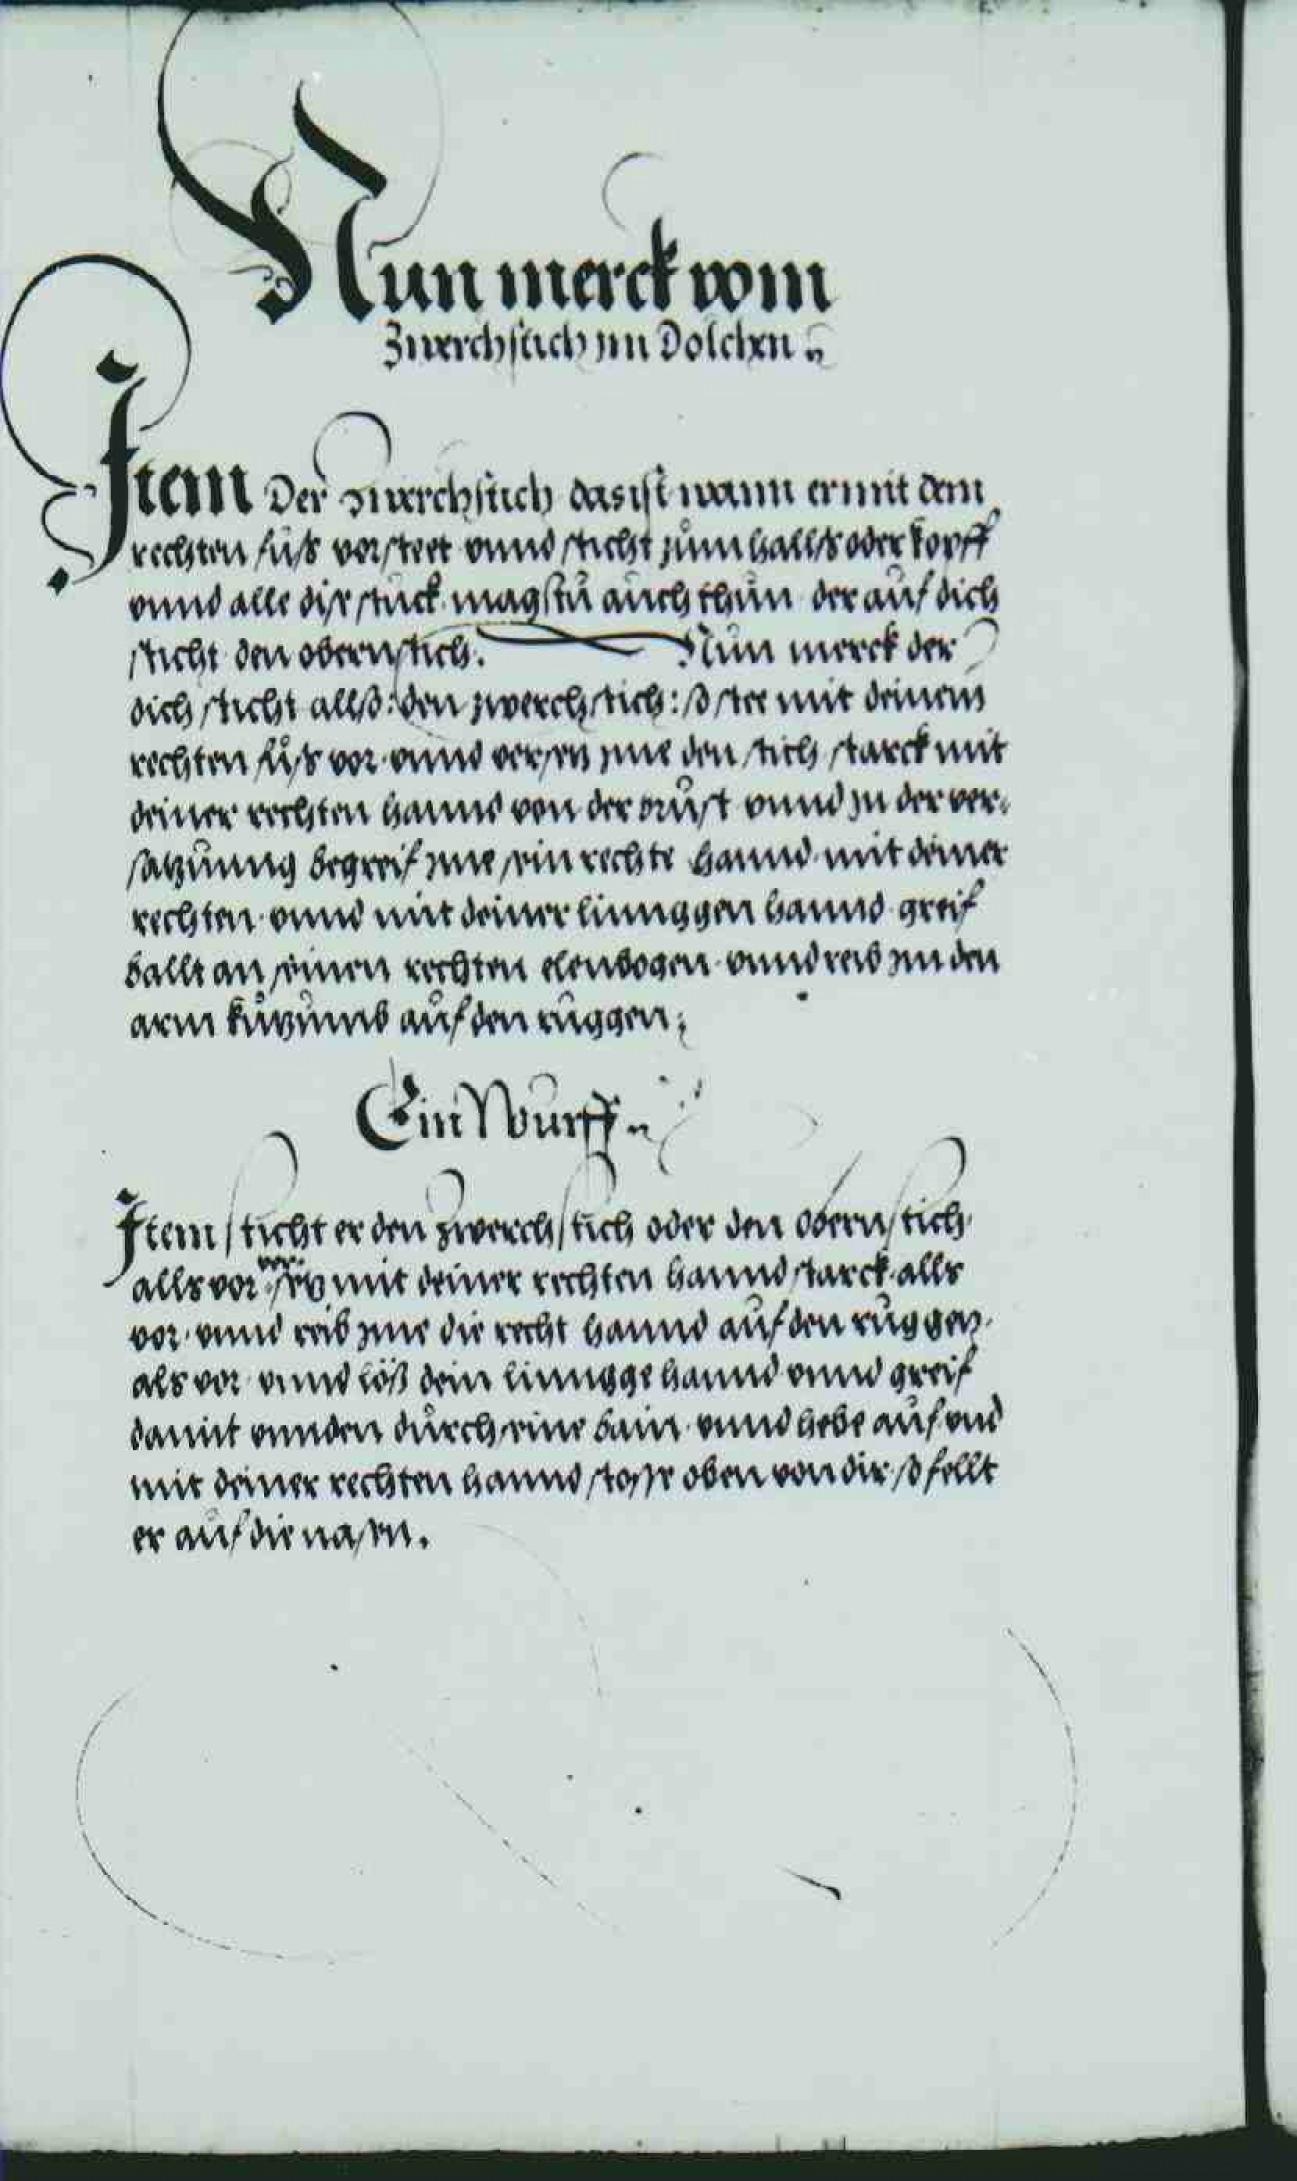 Nun merck vom
Zwerchstich im Dolchen
Item Der zwerchstich das ist wann er mit dem
rechten fůß vorsteet vnnd sticht zům hallß oder kopff
vnnd alle dise stuck magstu auch thůn der auf dich
sticht den obern stich. Nůn merck der
dich sticht allß: den zwerchstich: so stee mit deinem
rechten fůß vor vnnd versetz ime den stich starck mit
deiner rechten hannd von der brůst vnnd in der ver-
satzůnng begreif ime sein rechte hannd mit deiner
rechten vnnd mit deiner linnggen hannd greif
balld an seinen rechten elenbogen vnnd reib im den
arm hinůmb aůf den ruggen
Ein Wurff
Item sticht er den zwerchstich oder den obern stich
alls vor versetz mit deiner rechten hannd starck alls
vor vnnd reib ime die recht hannd aůf den ruggen
als vor vnnd löß dein linngge hannd vnnd greif
damit vnnden důrch seine bain vnnd hebe aůf vnd
mit deiner rechten hannd stosse oben von dir so fellt
er aůf die nasen.